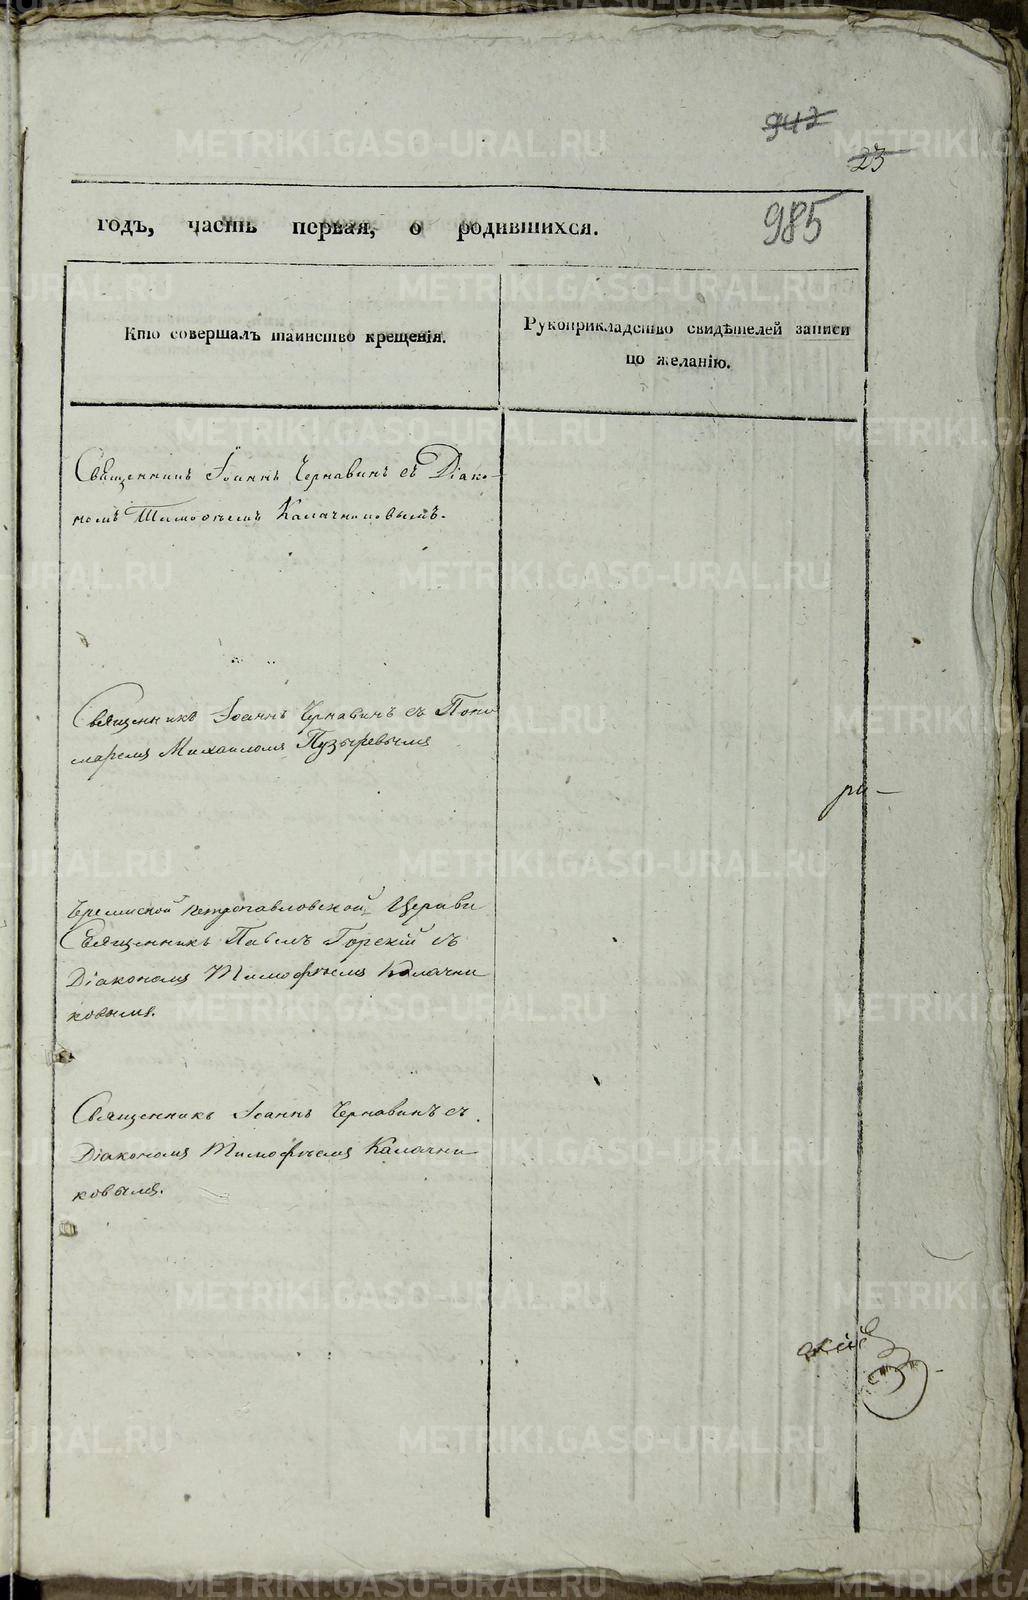 942
23
985
годъ, часть первая, о родившихся.
Кто совершалъ таинство крещенія.
Рукоприкладство свидѣтелей записи
по желанію.
Священникъ Іоаннъ Чернавинъ съ Діако-
номъ Тимоѳеемъ Калачниковымъ.
Священникъ Іоаннъ Чернавинъ съ Поно
маремъ Михаиломъ Пузыревымъ
Черемиской Петропавловской Церкви
Священникъ Павелъ Горскій съ
Діакономъ Тимофеемъ Калачни
ковымъ.
ри-
Священникъ Іоаннъ Чернавинъ съ
Діакономъ Тимофеемъ Калачни
ковымъ.
METRIKI.GASO-URAL.RU